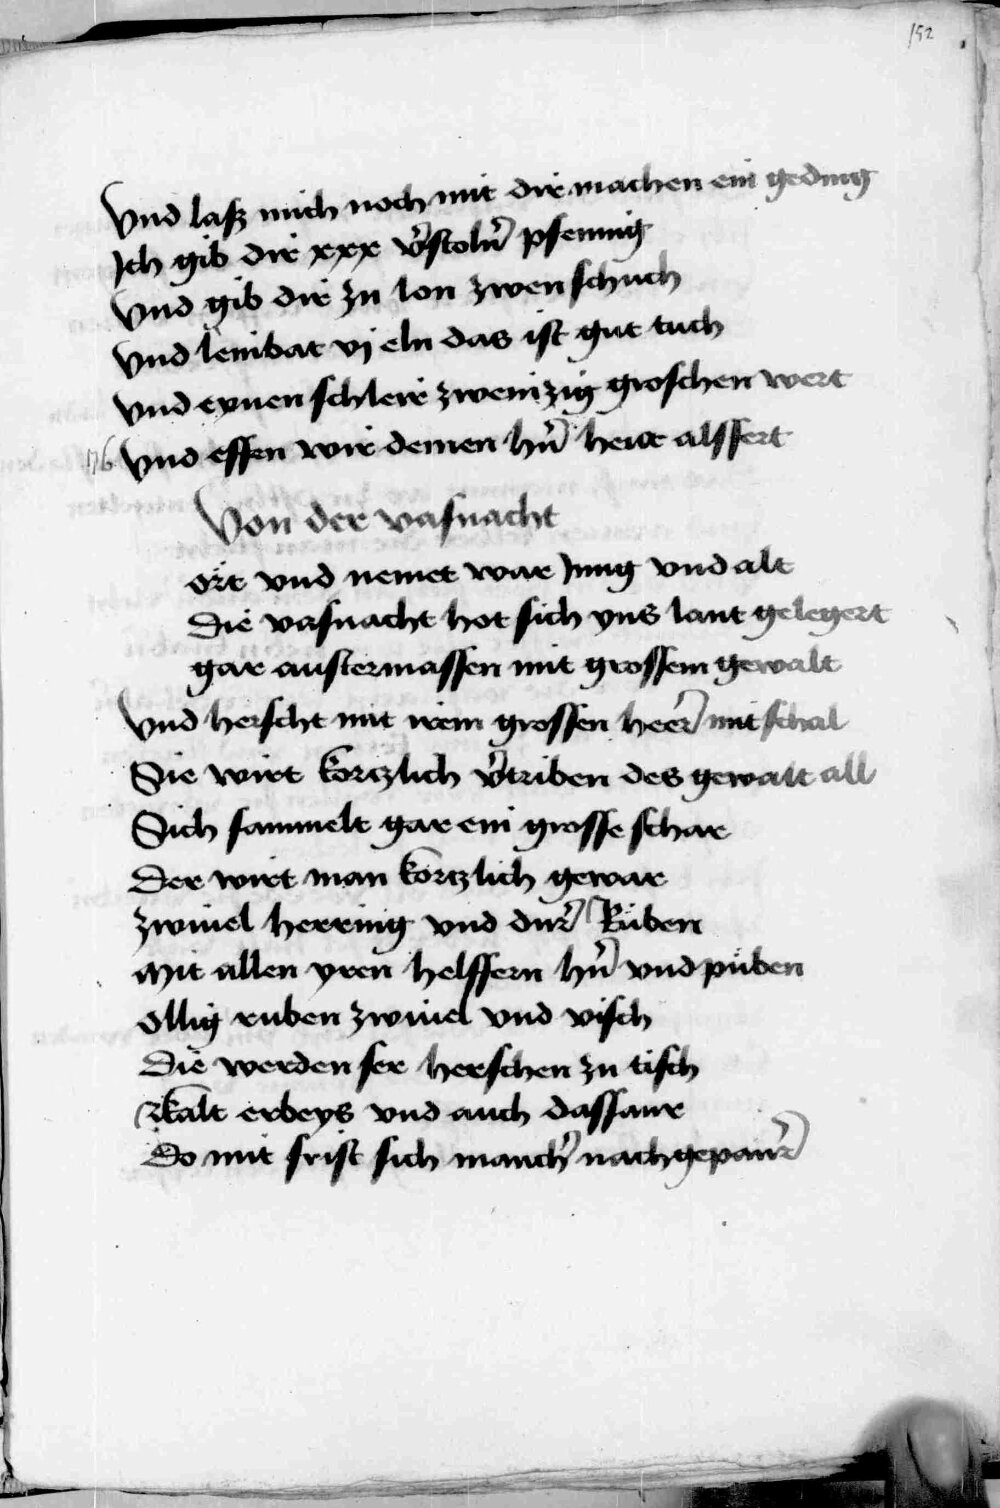 152
Vnd laß mich noch mit dir machen ein geding
Ich gib dir xxx v̄stoln̄ pfennig
Vnd gib dir zu lon zwen schuch
Vnd leinbat vj eln das ist gut tuch
Vnd eynen schleir zweinzig groschen wert
176 Vnd essen wir deinen hn̄ hewt alssfert
Von der vasnacht
ort vnd nemet war Jung vnd alt
Die vasnacht hot sich yns lant gelegert
gar austermassen mit grossem gewalt
Vnd herscht mit irem grossen heer̄ mit schal
Sie wirt kortzlich v̄triben des gewalt all
Sich sammelt gar ein grosse schar
Der wirt man kortzlich gewar
Zwiuel herring vnd dur̄ Ruben
Mit allen yren helffern hn̄ vnd puben
ollig ruben zwiuel vnd visch
Die werden ser herschen zu tisch
kalt erbeys vnd auch dassaur
Do mit frist sich manch̄ nachgepaur̄